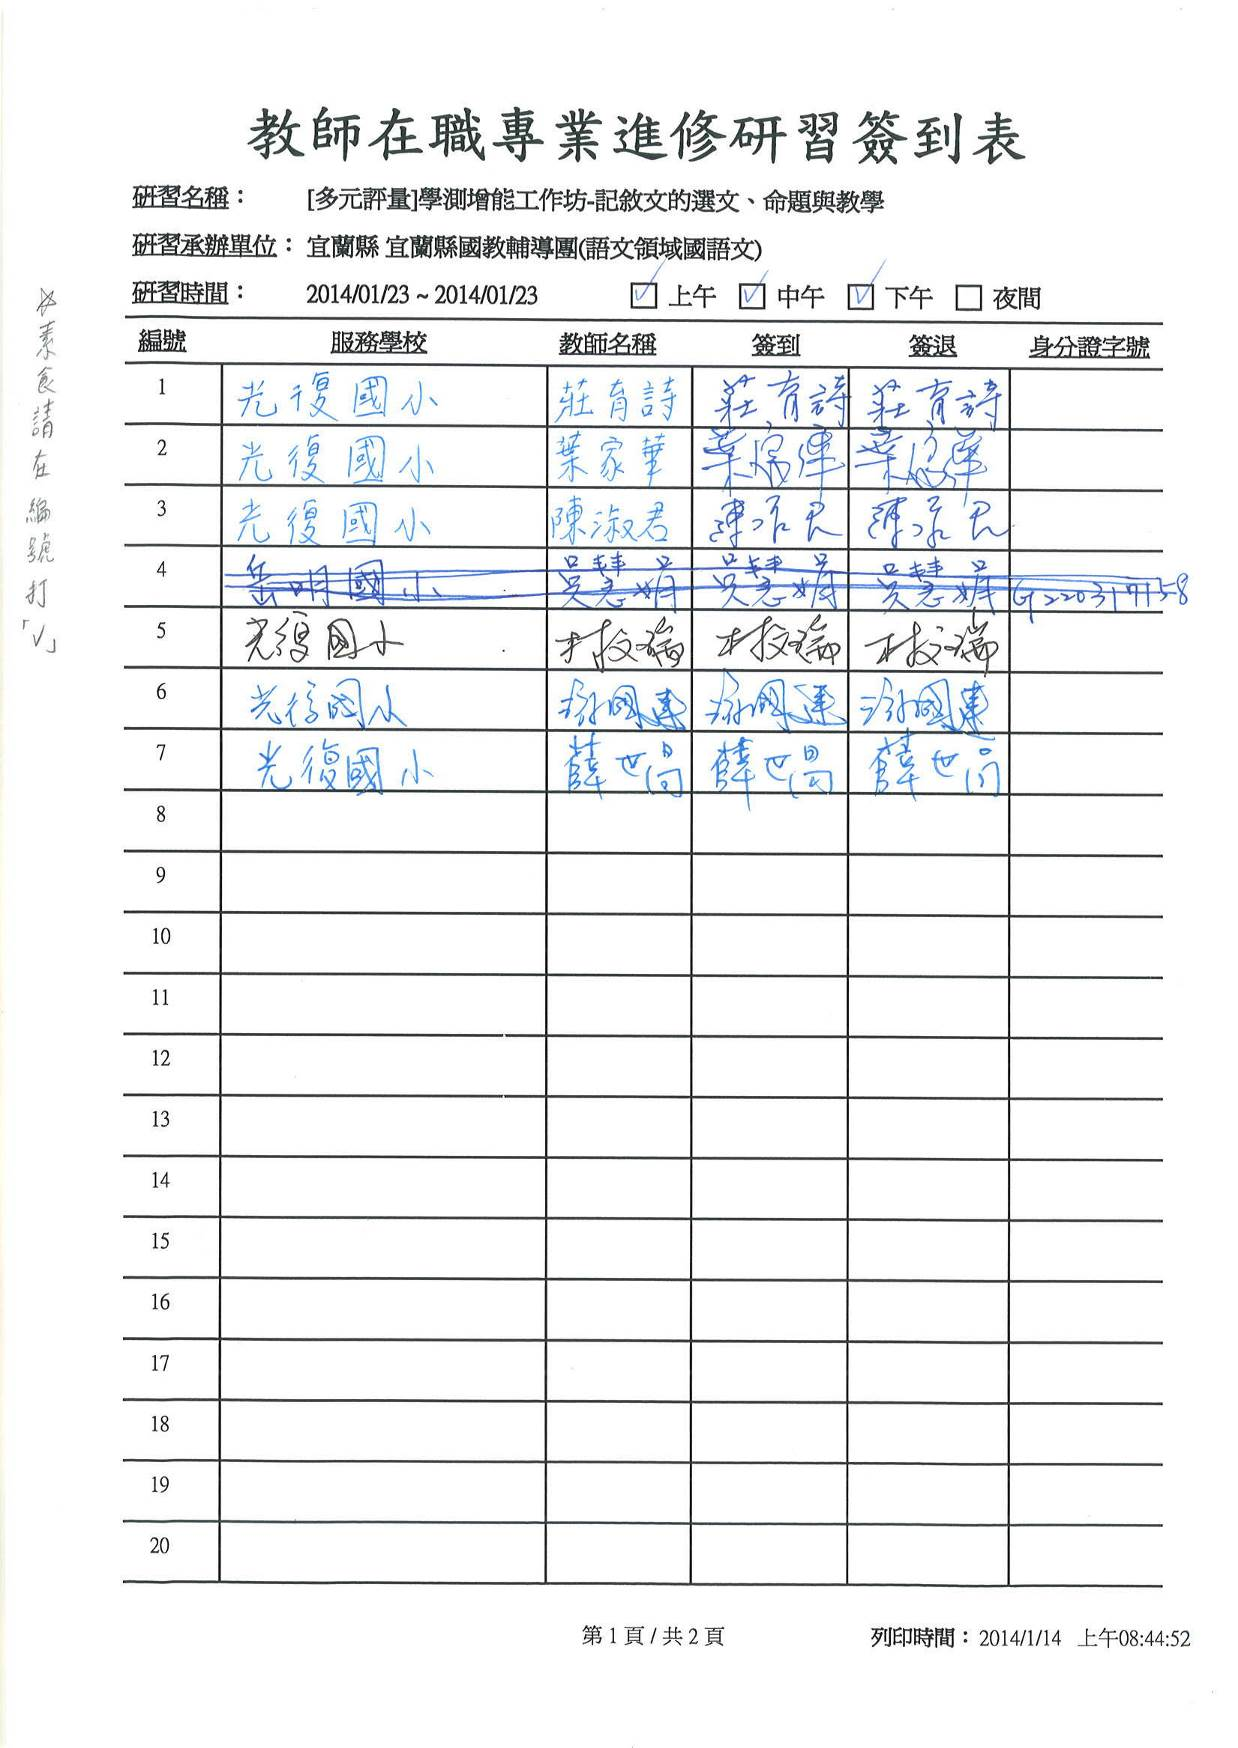 教師在職專業進修研習簽到表
研習名稱： [多元評量]學測增能工作坊-記敘文的選文、命題與教學
研習承辦單位： 宜蘭縣 宜蘭縣國教輔導團(語文領域國語文)
研習時間： 2014/01/23 ~ 2014/01/23 ☑ 上午 ☑ 中午 ☑ 下午 □ 夜間
素食請在編號打「V」
編號 服務學校 教師名稱 簽到 簽退 身分證字號
1 光復國小 莊育詩 莊育詩 莊育詩
2 光復國小 葉家華 葉家華 葉家華
3 光復國小 陳淑君 陳淑君 陳淑君
4 岳明國小 吳慧娟 吳慧娟 吳慧娟
5 光復國小
6 光復國小
7 光復國小 薛世昌 薛世昌 薛世昌
8
9
10
11
12
13
14
15
16
17
18
19
20
第 1 頁 / 共 2 頁 列印時間： 2014/1/14 上午08:44:52